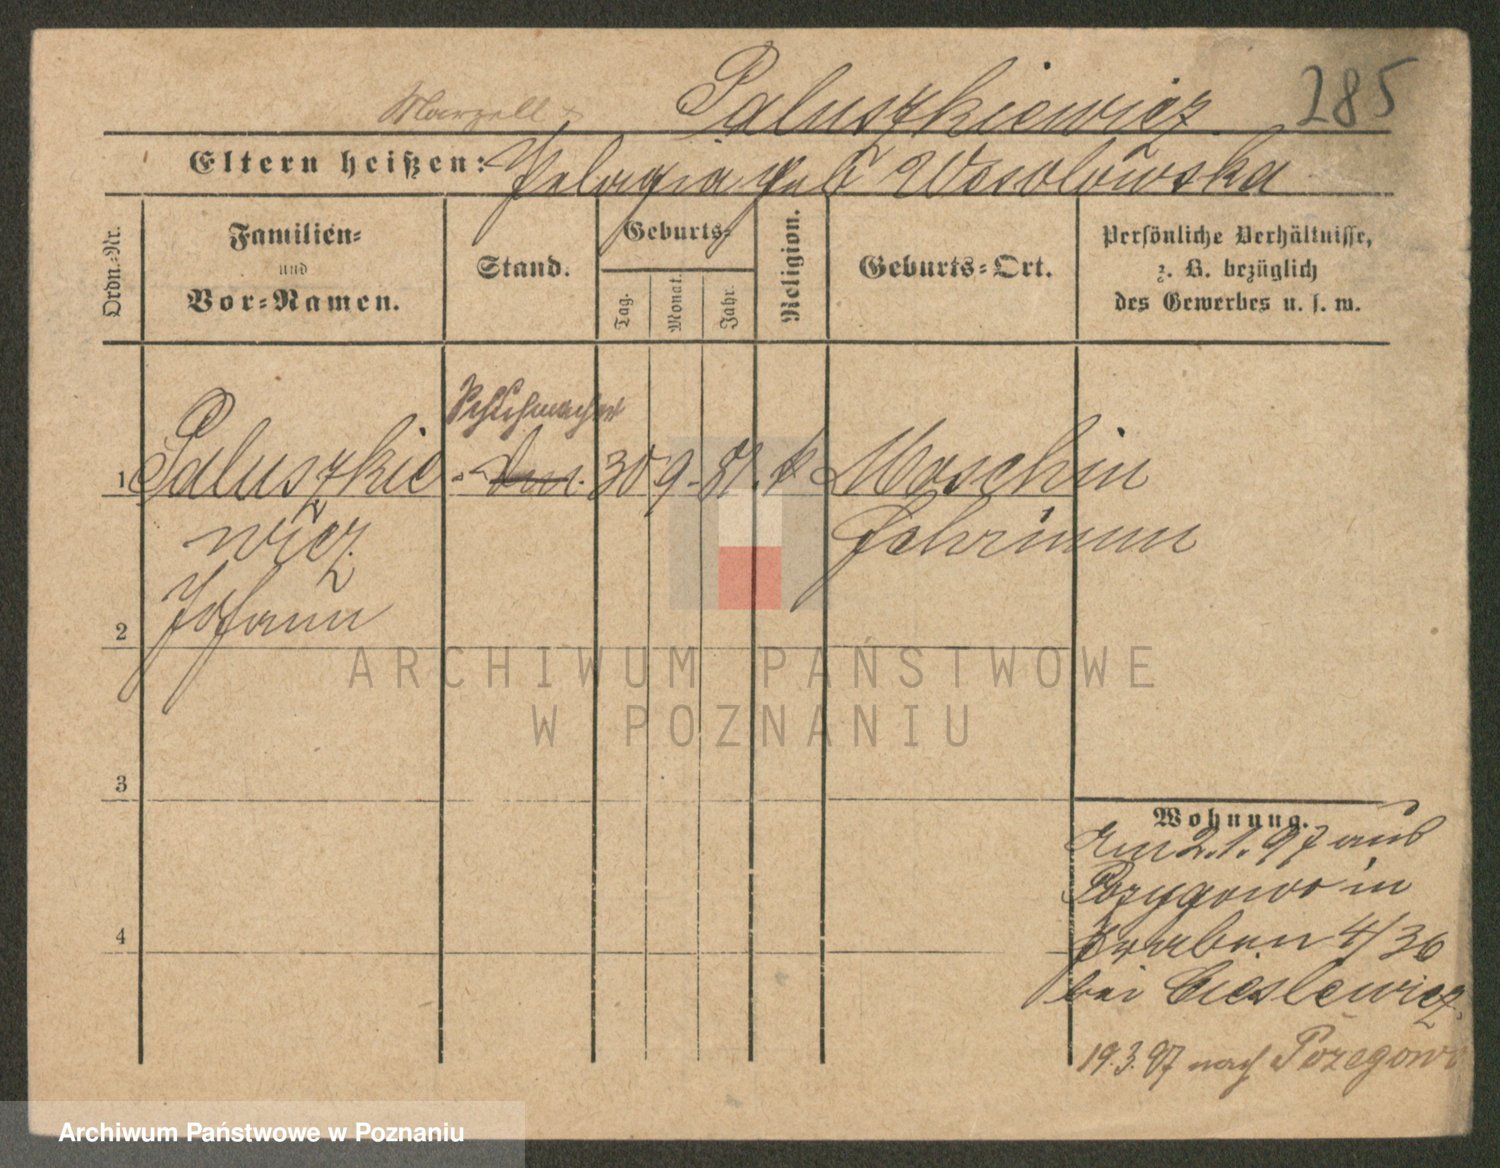 Marzell Paluszkiewicz 285
Eltern heißen: Pelagia geb Wesolowska
Ordn.-Nr.
Familien-
und
Vor-Namen.
Stand.
Geburts-
Tag.
Monat.
Jahr.
Religion.
Geburts-Ort.
Persönliche Verhältnisse,
z. B. bezüglich
des Gewerbes u. s. w.
Schuhmacher
1 Paluszkie 30 9. 81. k Moschin
wicz Schrimm
Johann
2
3
4
ARCHIWUM PAŃSTWOWE
W POZNANIU
Wohnung.
Am 2.1.97 aus
in
Graben 4/36
bei Cieslewicz.
19.3.97 nach Pozegowo
Archiwum Państwowe w Poznaniu